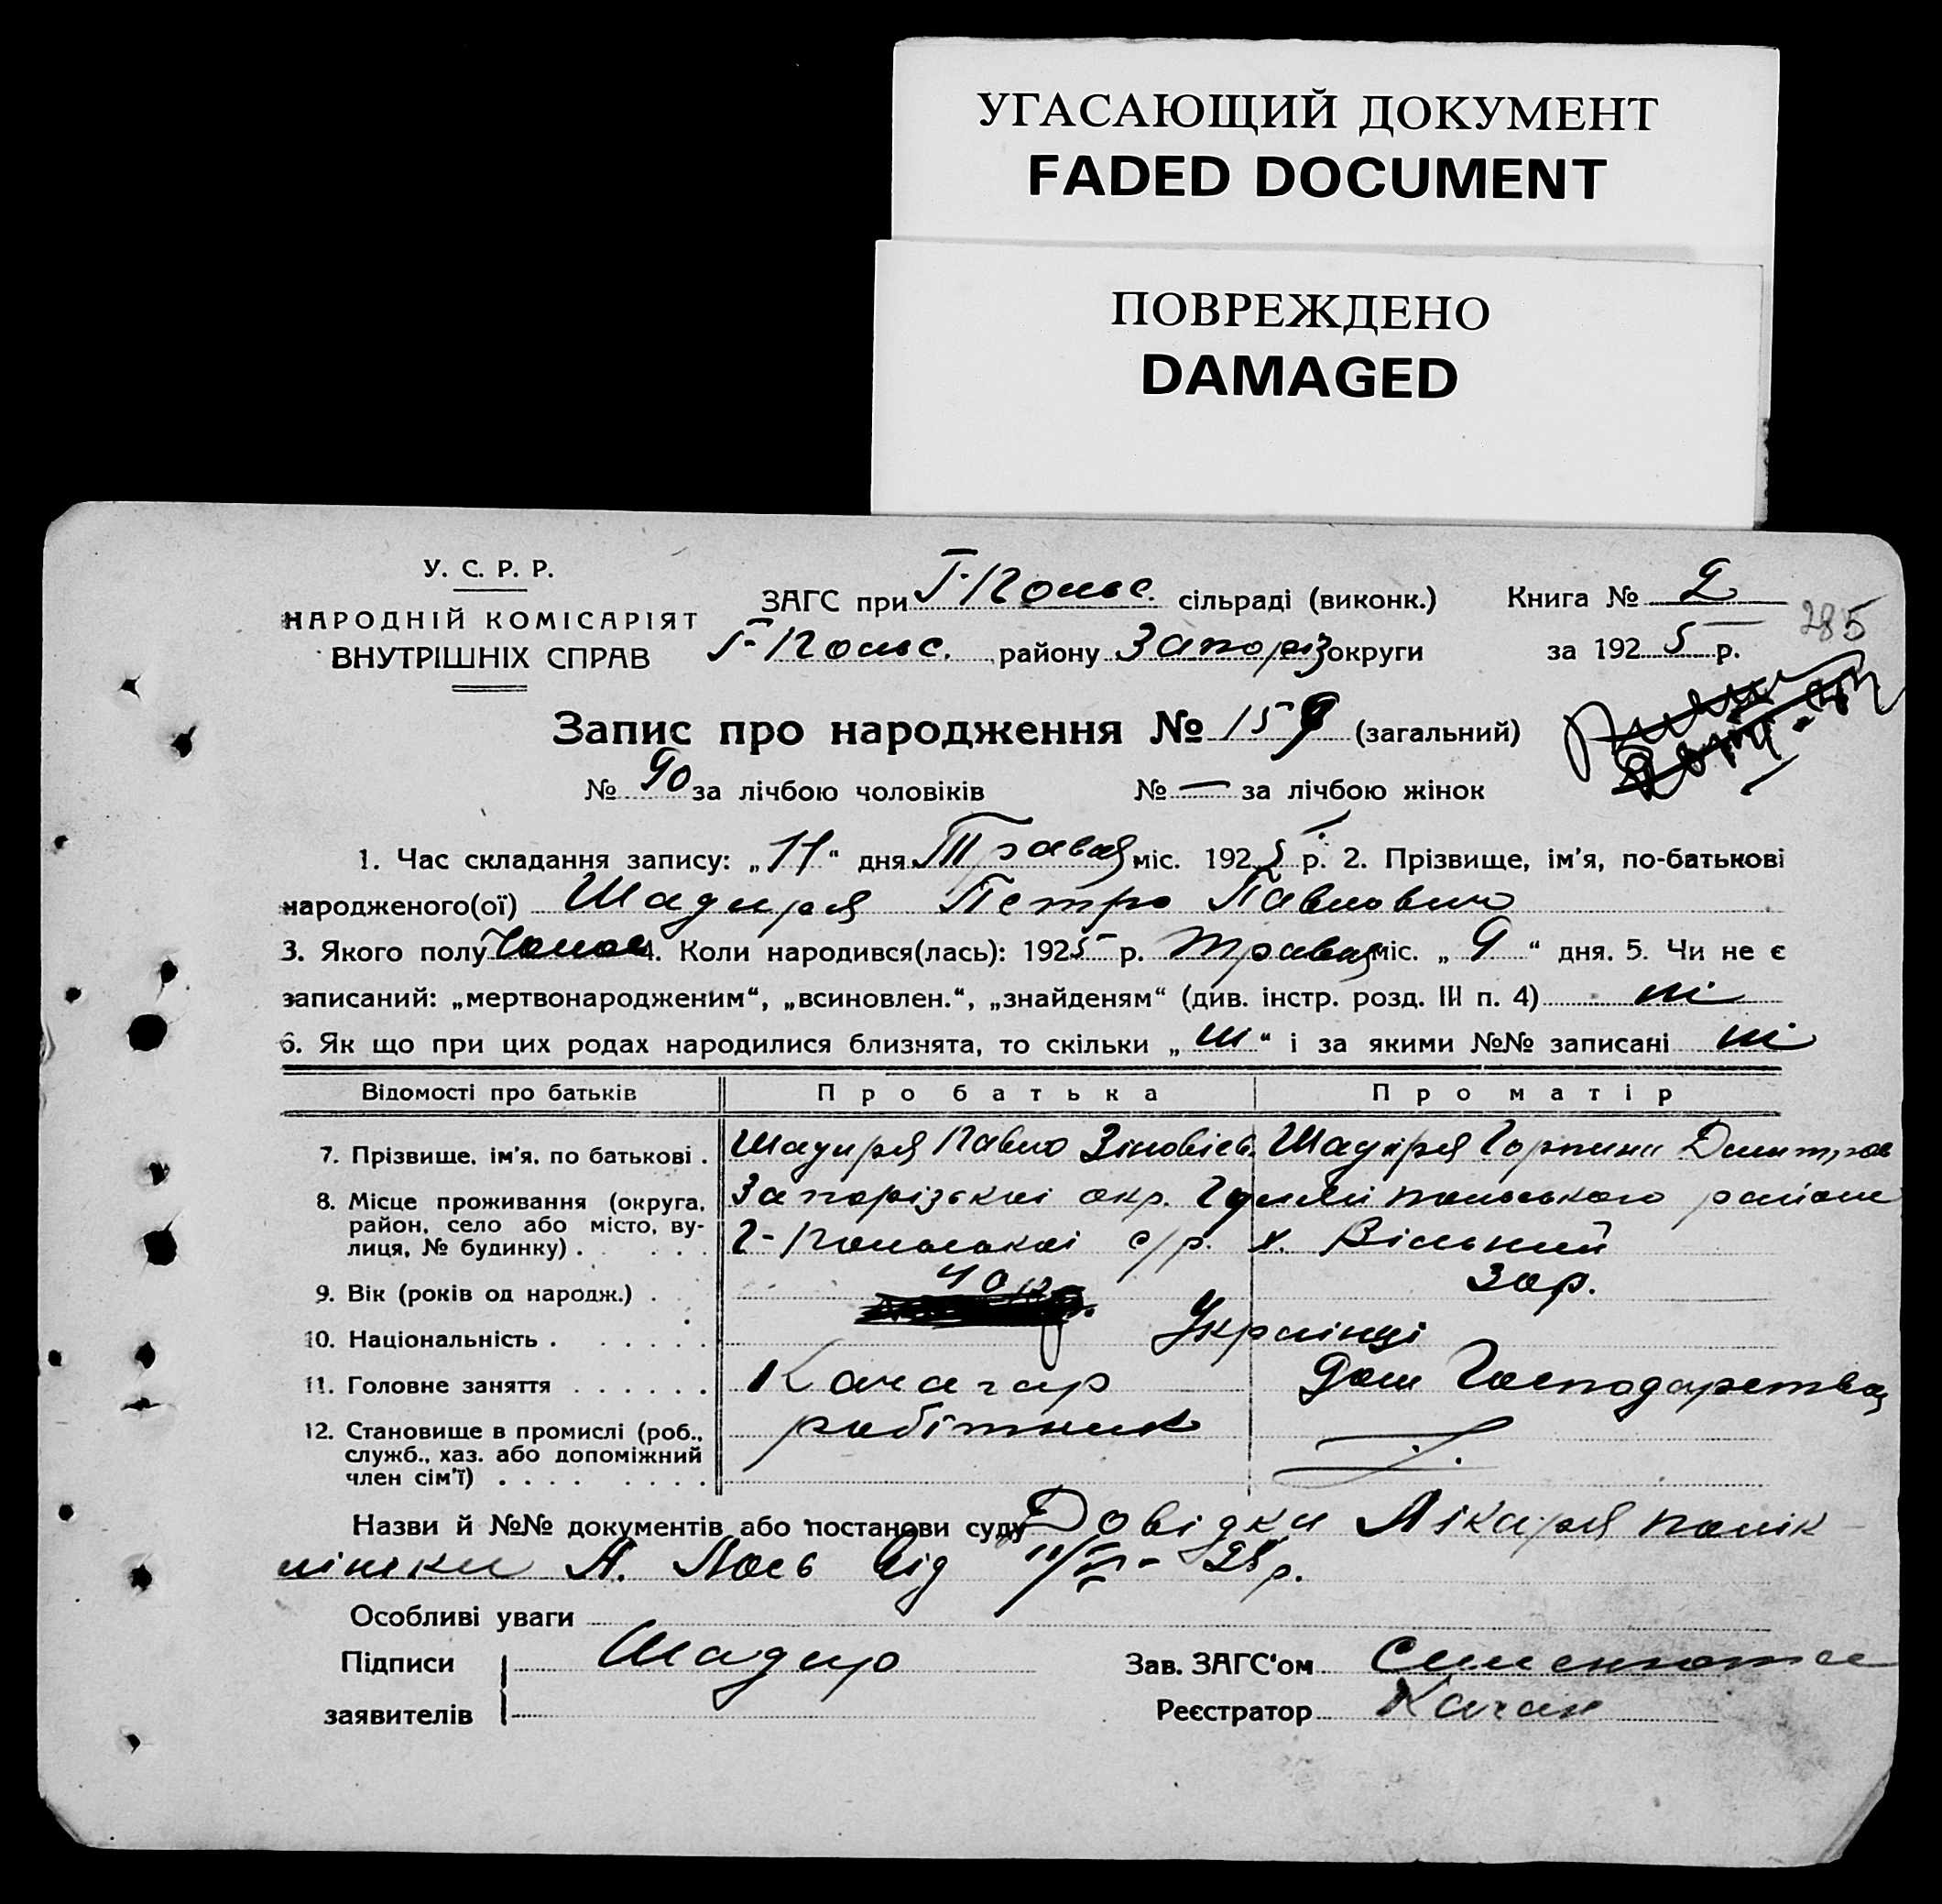 УГАСАЮЩИЙ ДОКУМЕНТ
FADED DOCUMENT
ПОВРЕЖДЕНО
DAMAGED
У. С. Р. Р.
НАРОДНІЙ КОМІСАРІЯТ
ВНУТРІШНІХ СПРАВ
ЗАГС при Г-Польс. сільраді (виконк.)
Г-Польс. району Запоріз округи
Книга № 2
285
за 1925 р.
Запис про народження № 159 (загальний)
№ 90 за лічбою чоловіків № — за лічбою жінок
1. Час складання запису: „11“ дня Травня міс. 1925 р. 2. Прізвище, ім'я, по-батькові
народженого(ої) Шадиря Петро Павлович
3. Якого полу Чолов 4. Коли народився(лась): 1925 р. Травня міс. „9“ дня. 5. Чи не є
записаний: „мертвонародженим“, „всиновлен.“, „знайденям“ (див. інстр. розд. III п. 4) ні
6. Як що при цих родах народилися близнята, то скільки „ні“ і за якими №№ записані ні
Відомості про батьків Про батька Про матір
7. Прізвище, ім'я, по батькові . Шадиря Павло Зіновієв. Шадиря Горпина Дмитров
8. Місце проживання (округа, район, село або місто, вулиця, № будинку) . Запорізькоі окр. Гуляй польського району
Г-Польськоі с/р. х. Вільний
9. Вік (років од народж.) . 40 р. 30 р.
10. Національність . Украінці
11. Головне заняття Качагар Дом Господарства
12. Становище в промислі (роб., служб., хаз. або допоміжний член сім'ї) робітник
Назви й №№ документів або постанови суду Довідки Лікаря полік
лініки А. Лось від 11/V - 25 р.
Особливі уваги
Підписи заявителів Шадир
Зав. ЗАГС'ом
Реєстратор Качан